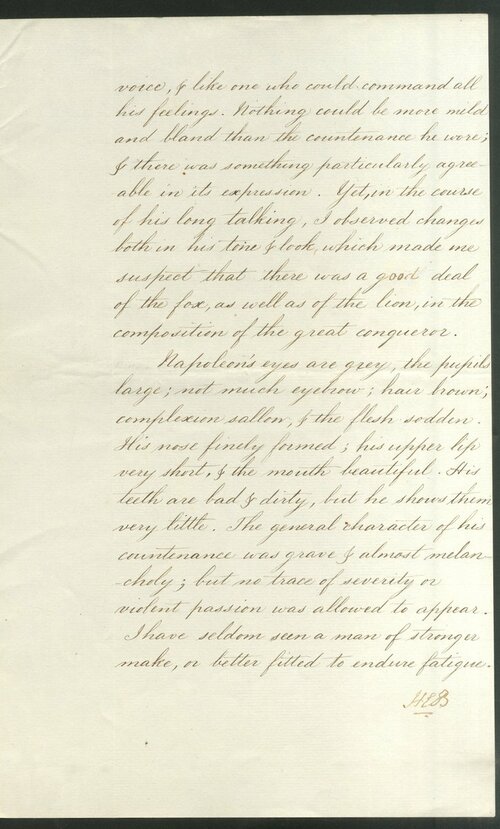 voice, & like one who could command all
his feelings. Nothing could be more mild
and bland than the countenance he wore;
& there was something particularly agree-
able in its expression. Yet, in the course
of his long talking, I observed changes
both in his tone & look, which made me
suspect that there was a good deal
of the fox, as well as of the lion, in the
composition of the great conqueror.
Napoleon's eyes are grey, the pupils
large; not much eyebrow; hair brown;
complexion sallow, & the flesh sodden.
His nose finely formed; his upper lip
very short, & the mouth beautiful. His
teeth are bad & dirty, but he shows them
very little. The general character of his
countenance was grave & almost melan-
-choly; but no trace of severity or
violent passion was allowed to appear.
I have seldom seen a man of stronger
make, or better fitted to endure fatigue.
HEB